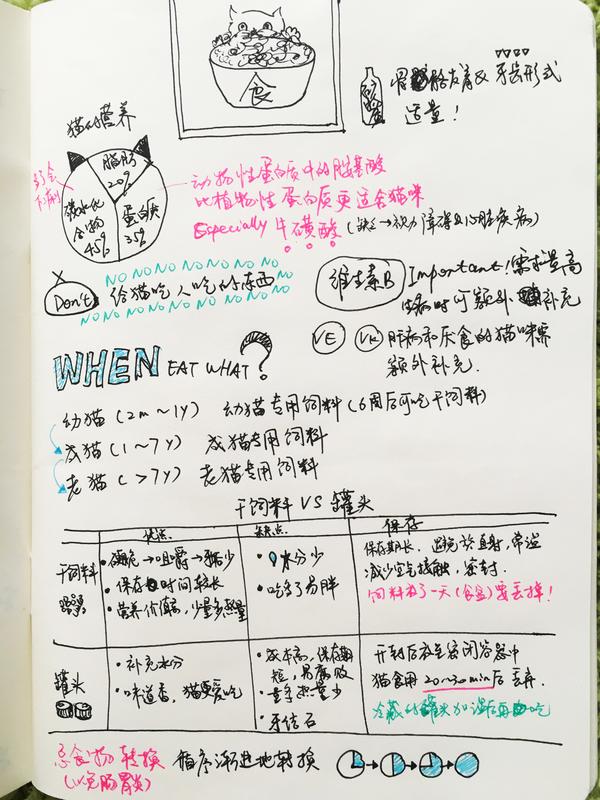 食
骨骼发育及牙齿形式
适量！
猫的营养
脂肪
20%
碳水化
合物
45%
蛋白质
35%
动物性蛋白质中的氨基酸
比植物性蛋白质更适合猫咪
Especially 牛磺酸（缺乏→视力障碍及心脏疾病）
NO NO NO NO NO NO NO NO
Don't 给猫吃人吃的东西
NO NO NO NO NO NO NO NO NO
维生素B Important！需求量高
生病时可额外补充
VE VK 肝病和厌食的猫咪需
额外补充.
WHEN EAT WHAT？
幼猫（2m~1y） 幼猫专用饲料（6周后可吃干饲料）
成猫（1~7y） 成猫专用饲料
老猫（>7y） 老猫专用饲料
干饲料 VS 罐头
优点 缺点 保存
干饲料
·硬脆→咀嚼→牙结少
·保存时间较长
·营养价值高，少量多热量
·水分少
·吃多了易胖
保存期长. 避免放直射，常温
减少空气接触，密封.
饲料放了一天（食盆）要丢掉！
罐头
·补充水分
·味道香，猫更爱吃
·成本高，保存期
短，易腐败
·量多热量少
·牙结石
开封后放至密闭容器中
猫食用20~30min后丢弃.
冷藏的罐头加温后再吃
忌食物转换 循序渐进地转换
（以免肠胃炎）